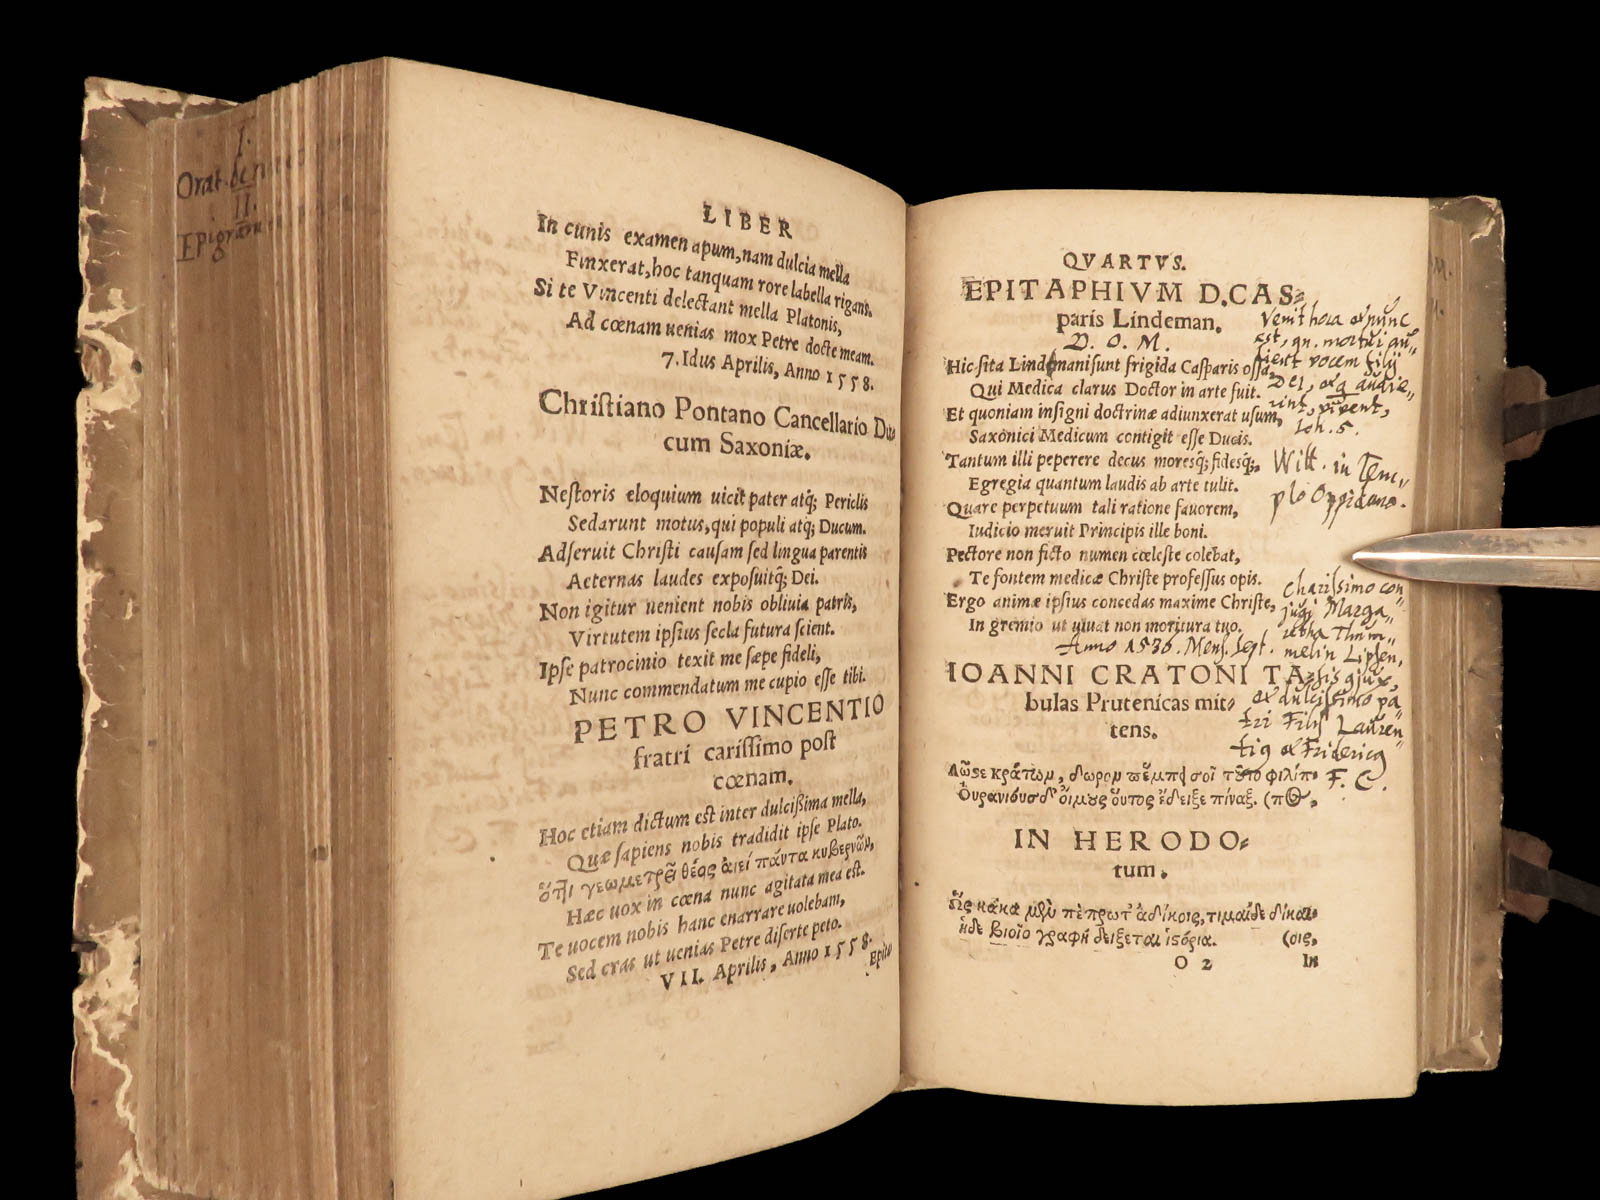 I.
Orat. de
II.
Epigram
LIBER
In cunis examen apum, nam dulcia mella
Finxerat, hoc tanquam rore labella rigans.
Si te Vincenti delectant mella Platonis,
Ad cœnam uenias mox Petre docte meam.
7. Idus Aprilis, Anno 1558.
Christiano Pontano Cancellario Du
cum Saxoniæ.
Nestoris eloquium uicit pater atq́; Periclis
Sedarunt motus, qui populi atq́; Ducum.
Adseruit Christi causam sed lingua parentis
Aeternas laudes exposuitq́; Dei.
Non igitur uenient nobis obliuia patris,
Virtutem ipsius secla futura scient.
Ipse patrocinio texit me sæpe fideli,
Nunc commendatum me cupio esse tibi.
PETRO VINCENTIO
fratri carissimo post
cœnam.
Hoc etiam dictum est inter dulcißima mella,
Quæ sapiens nobis tradidit ipse Plato.
ὅτι γεωμετρεῖ θεὸς ἀιεί πάντα κυβερνῶν,
Hæc uox in cœna nunc agitata mea est.
Te uocem nobis hanc enarrare uolebam,
Sed cras ut uenias Petre diserte peto.
VII. Aprilis, Anno 1558.
Epita
QVARTVS.
EPITAPHIVM D. CAS-
paris Lindeman.
D. O. M.
Hic sita Lindmani sunt frigida Casparis ossa,
Qui Medica clarus Doctor in arte fuit.
Et quoniam insigni doctrinæ adiunxerat usum,
Saxonici Medicum contigit esse Ducis.
Tantum illi peperere decus moresq́; fidesq́;,
Egregia quantum laudis ab arte tulit.
Quare perpetuum tali ratione fauorem,
Iudicio meruit Principis ille boni.
Pectore non ficto numen cœleste colebat,
Te fontem medicæ Christe professus opis.
Ergo animæ ipsius concedas maxime Christe,
In gremio ut uiuat non moritura tuo.
Anno 1536. Mens. Sept.
Venit hora et nunc
est, qn. mortui au-
dient vocem filij
Dei, et q audie-
rint, vivent,
Ioh. 5.
Witt. in Tem-
plo Oppidano.
Charissimo con-
jugi Marga-
retha Thüm-
melin Lipsen-
sis ejus,
et dulcissimo pa-
tri Filij Lauren-
tig et Fridericg
F. C.
IOANNI CRATONI TA-
bulas Prutenicas mit-
tens.
Λῶσε κράτων, δωρον πέμπει σοὶ τοῦτο φιλίπ-
Ουρανίους δ' οἴμους οὗτος ἔδειξε πίναξ. (πος,
IN HERODO-
tum.
ὥς κακὰ μὲν πέπρωτ' ἀδίκοις, τιμαὶ δὲ δίκαι-
ἥδε βιοῖο γραφὴ δείξεται ἱστόρια. (οις,
O 2
In